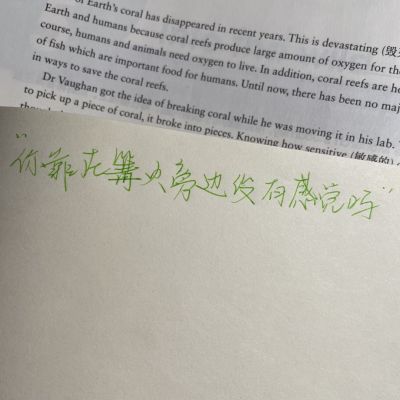 of Earth's coral has disappeared in recent years. This is devastating (毁
Earth and humans because coral reefs produce large amount of oxygen for the
course, humans and animals need oxygen to live. In addition, coral reefs are
of fish which are important food for humans. Until now, there has been no maj
in ways to save the coral reefs.
Dr Vaughan got the idea of breaking coral while he was moving it in his lab.
to pick up a piece of coral, it broke into pieces. Knowing how sensitive (敏感的)
"你靠在篝火旁边没有感觉吗"